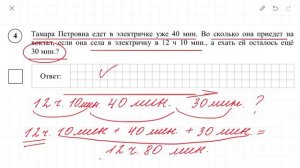 4
Тамара Петровна едет в электричке уже 40 мин. Во сколько она приедет на
вокзал, если она села в электричку в 12 ч 10 мин., а ехать ей осталось ещё
30 мин.?
Ответ:
12 ч. 10 мин 40 мин. 30 мин. ?
12 ч. 10 мин + 40 мин + 30 мин =
12 ч. 80 мин.